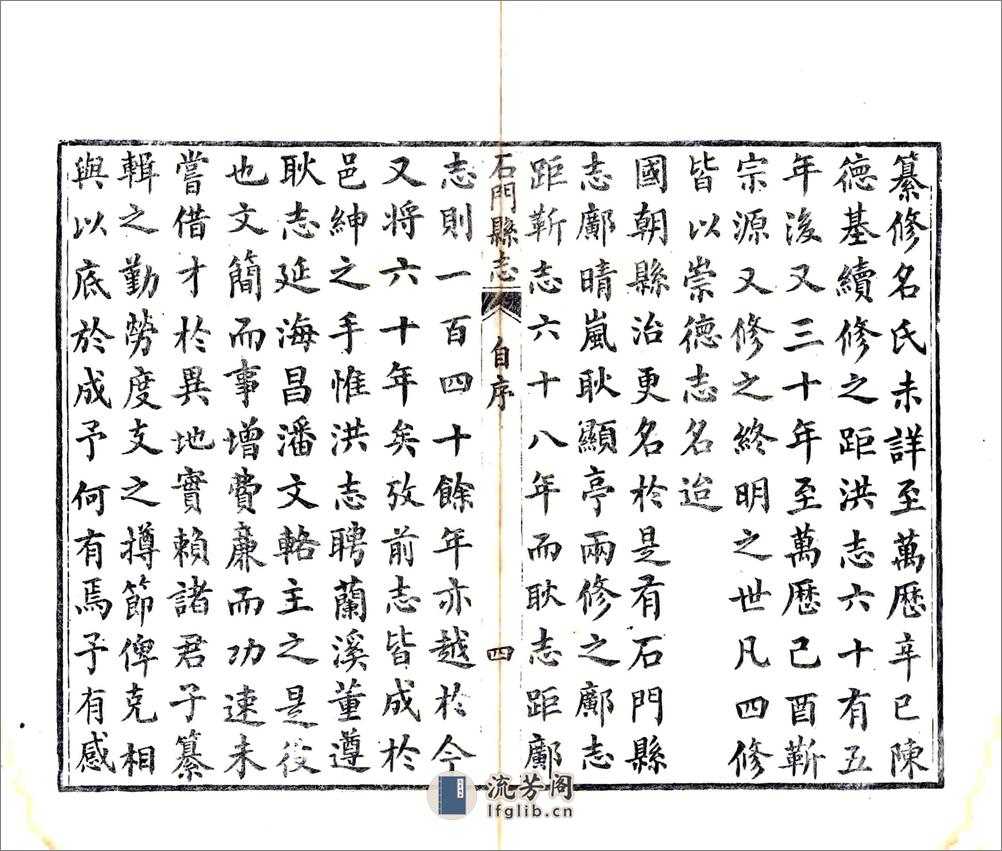 纂修名氏未詳至萬歷辛巳陳
德基續修之距洪志六十有五
年後又三十年至萬歷己酉靳
宗源又修之終明之世凡四修
皆以崇德志名迨
國朝縣治更名於是有石門縣
志鄺晴嵐耿顯亭兩修之鄺志
距靳志六十八年而耿志距鄺
石門縣志
自序
四
志則一百四十餘年亦越於今
又將六十年矣攷前志皆成於
邑紳之手惟洪志聘蘭溪董遵
耿志延海昌潘文輅主之是役
也文簡而事增費廉而功速未
嘗借才於異地實賴諸君子纂
輯之勤勞度支之撙節俾克相
與以底於成予何有焉予有感
流芳阁
lfglib.cn